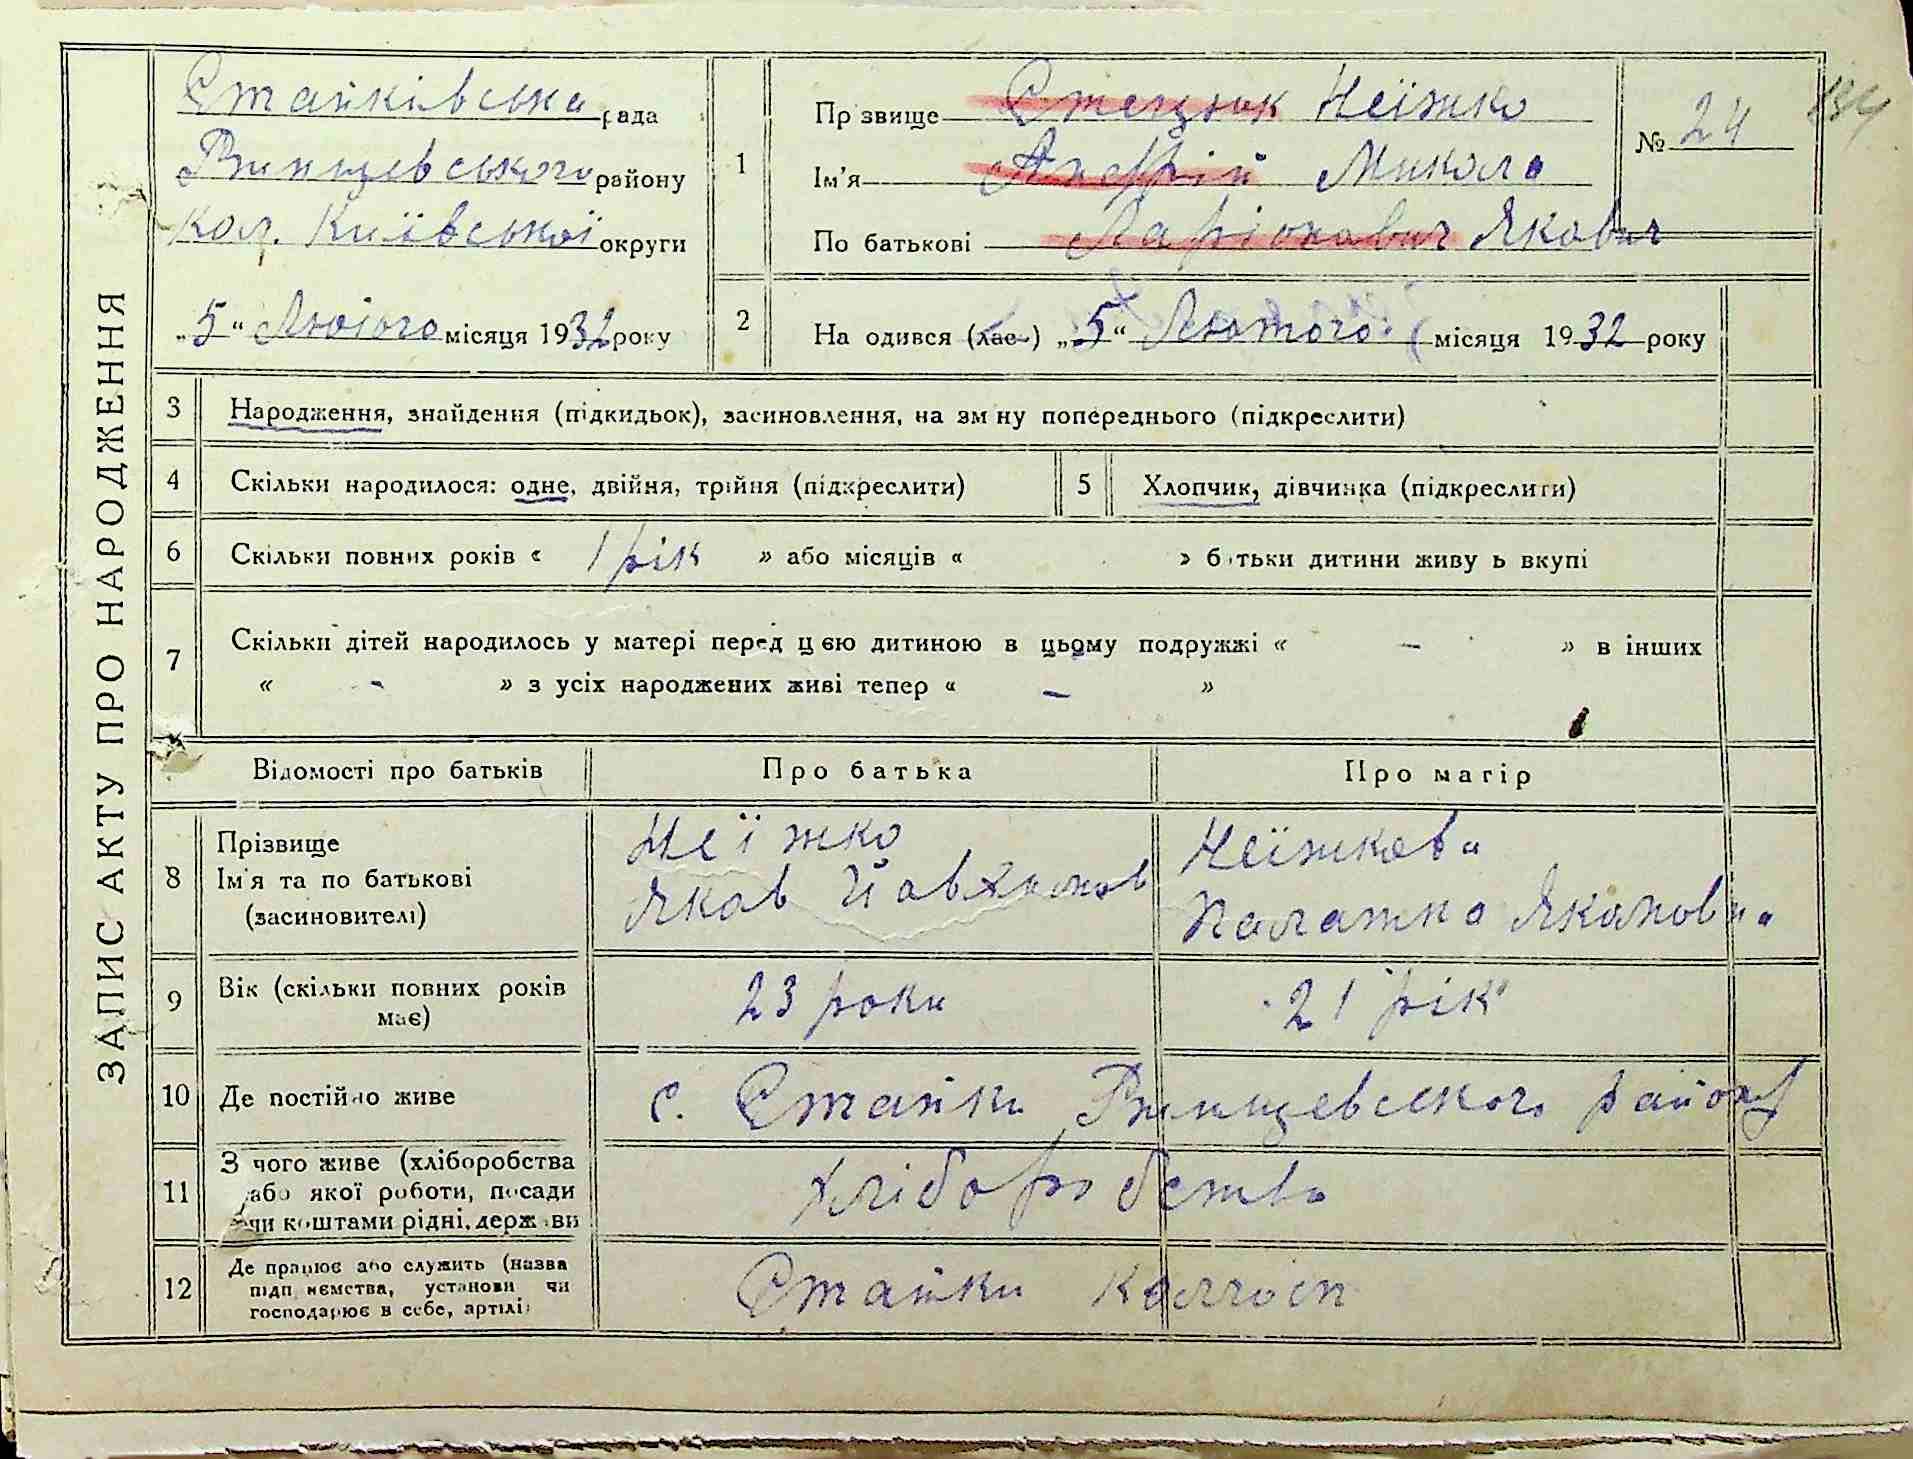 ЗАПИС АКТУ ПРО НАРОДЖЕННЯ
Стайківська рада
Ржищевського району
кол. Київської округи
„5“ Лютого місяця 1932 року
1
Прізвище Стецюк Неїжко
Ім'я Андрій Микола
По батькові Ларіонович Якович
№ 24
134
2
Народився (лас) „5“ Лютого місяця 1932 року
3 Народження, знайдення (підкидьок), засиновлення, на зміну попереднього (підкреслити)
4 Скільки народилося: одне, двійня, трійня (підкреслити)
5 Хлопчик, дівчинка (підкреслити)
6 Скільки повних років « 1 рік » або місяців « » батьки дитини живуть вкупі
7 Скільки дітей народилось у матері перед цею дитиною в цьому подружжі « – » в інших
« - » з усіх народжених живі тепер « – »
Відомості про батьків Про батька Про матір
8 Прізвище
Ім'я та по батькові
(засиновителі)
Неїжко
Яков
Неїжкова
9 Вік (скільки повних років
має)
23 роки
21 рік
10 Де постійно живе
с. Стайки Ржищевського району
11 З чого живе (хліборобства
або якої роботи, посади
чи коштами рідні, держави
хліборобство
12 Де працює або служить (назва
підприємства, установи чи
господарює в себе, артілі)
Стайки колгосп